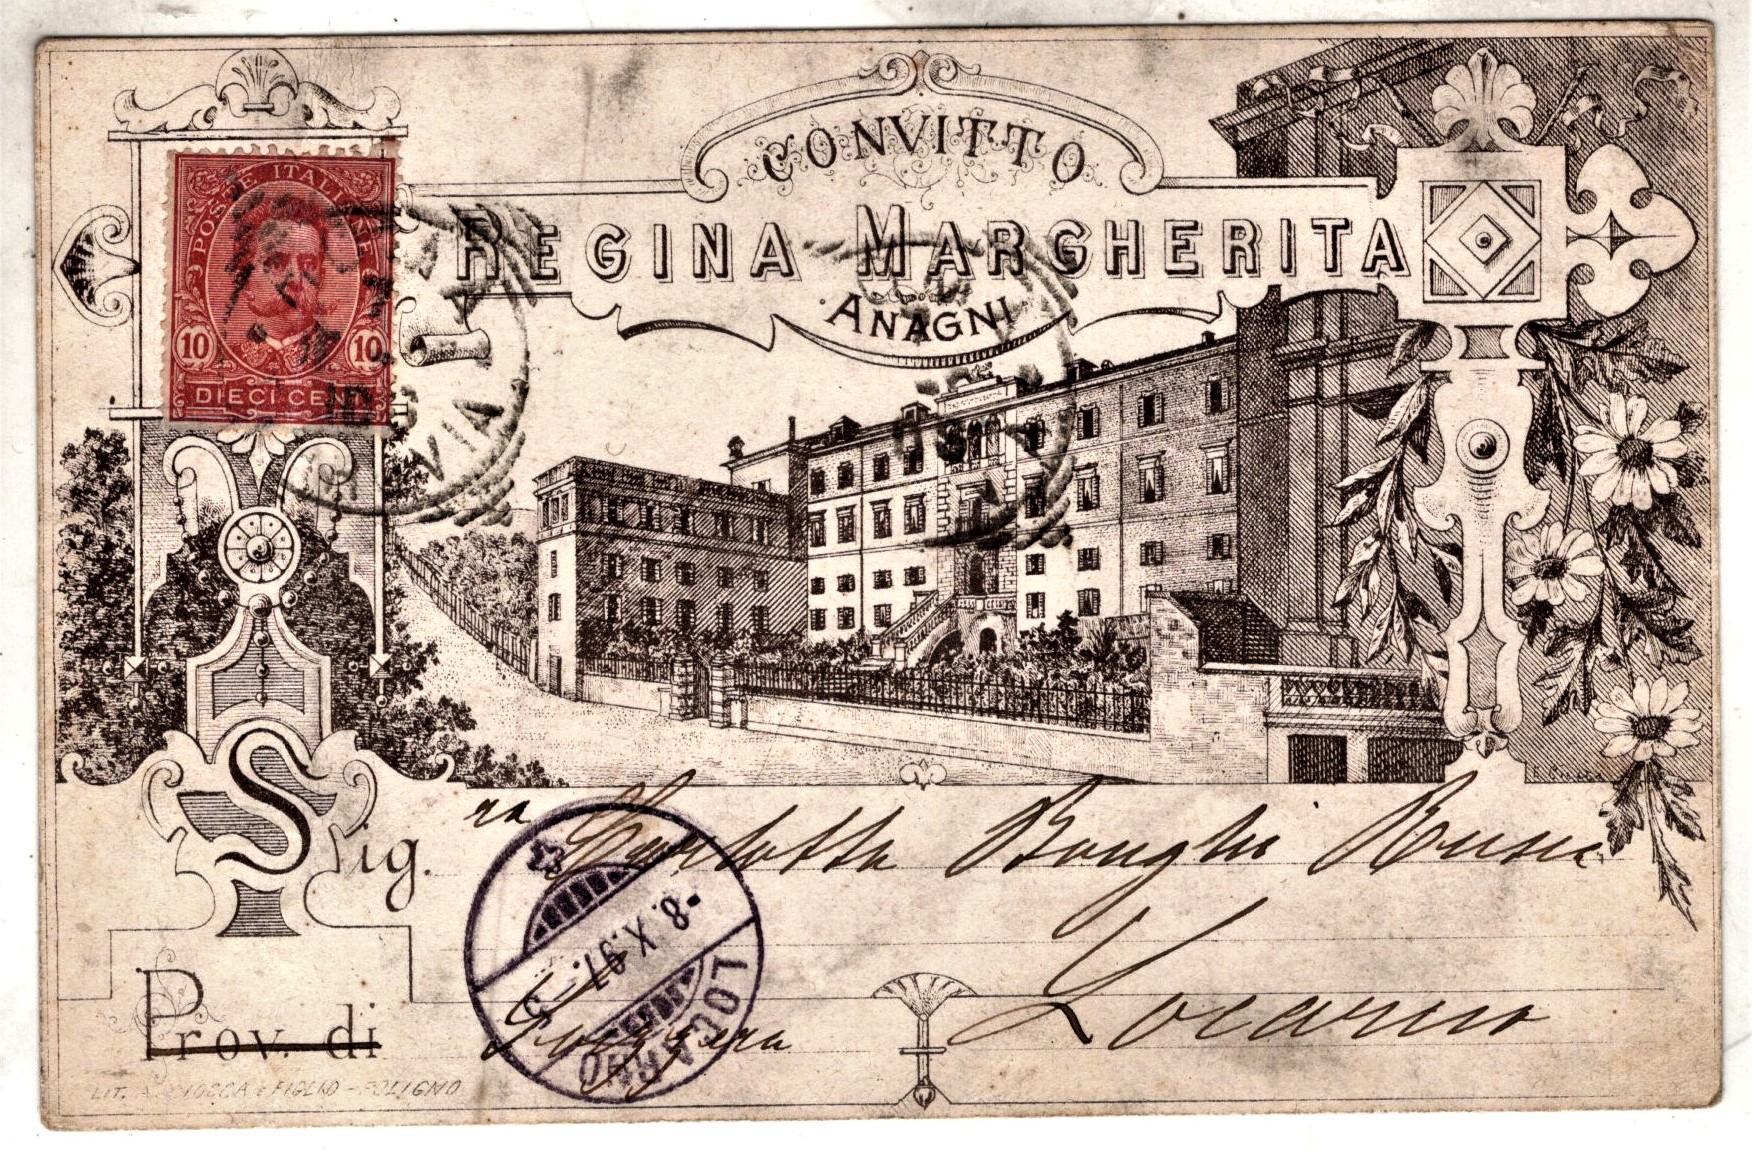 CONVITTO
REGINA MARGHERITA
ANAGNI
POSTE ITALIANE
10 10
DIECI CENT
Sig.ra Carlotta Bonghi Rusca
Locarno
Prov. di Svizzera
LOCARNO
-8.X.97.-
LIT. FIGLIO - FOLIGNO